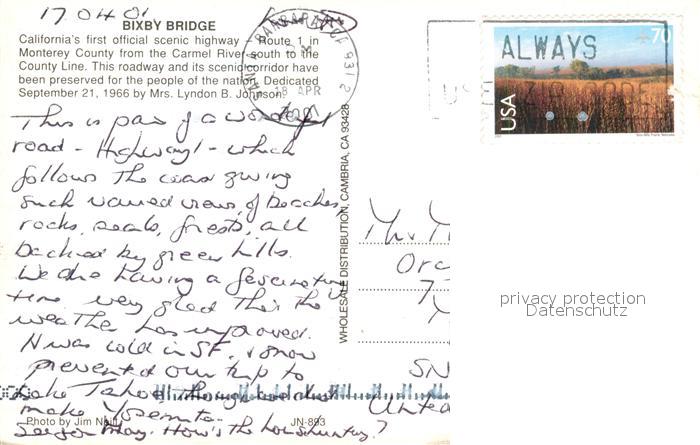 17 04 01
BIXBY BRIDGE
California's first official scenic highway - Route 1 in
Monterey County from the Carmel River south to the
County Line. This roadway and its scenic corridor have
been preserved for the people of the nation. Dedicated
September 21, 1966 by Mrs. Lyndon B. Johnson.
This is part of a wonderful
road - Highway 1 - which
follows the coast giving
such varied views of beaches,
rocks, seals, forests, all
backed by green hills.
We are having a fascinating
time very glad that the
weather has improved.
It was cold in SF, & snow
prevented our trip to
Lake Tahoe though we did
make Yosemite.
See you May. How's the househunting?
Photo by Jim Neill
JN-893
WHOLESALE DISTRIBUTION, CAMBRIA, CA 93428
SANTA BARBARA CA 931 2
18 APR
2001
ALWAYS
USE ZIP CODE
70
USA
Mr. 
Orc
7
SN
United
privacy protection
Datenschutz